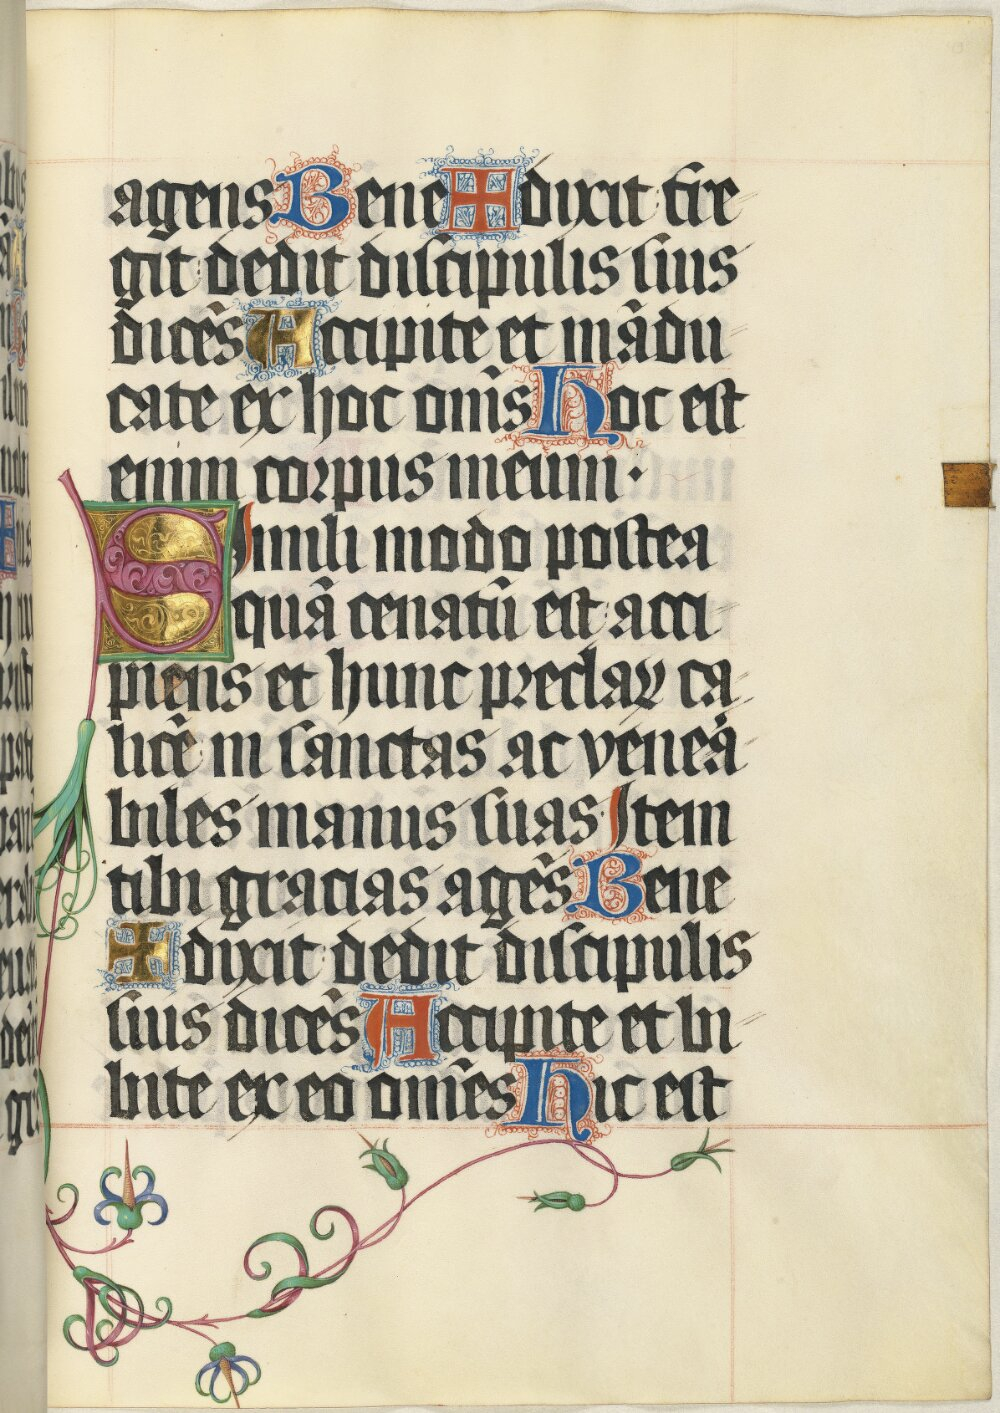 agens Bene ✠ dixit fre
git dedit discipulis suis
dicēs Accipite et mādu
cate ex hoc om̄s Hoc est
enim corpus meum ·
Simili modo postea
quā cenatū est acci
piens et hunc preclaꝝ ca
licē in sanctas ac venera
biles manus suas Item
tibi gracias agēs Bene
✠ dixit dedit discipulis
suis dicēs Accipite et bi
bite ex eo om̄es Hic est